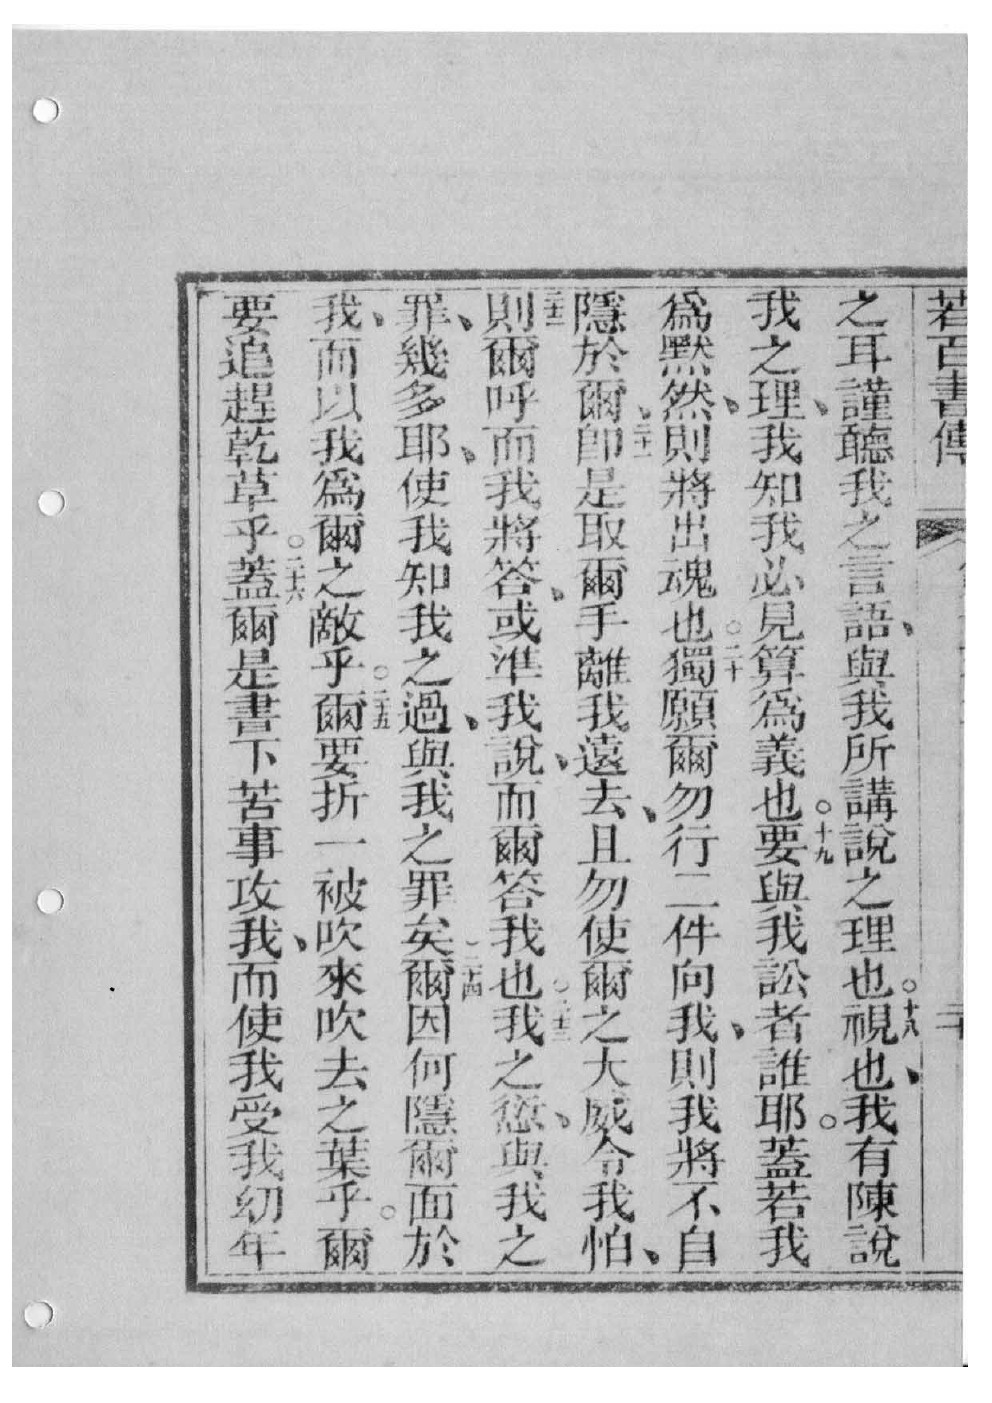 若百書傳
之耳謹聽我之言語、與我所講說之理也。十八視也、我有陳說
我之理、我知我必見算爲義也。十九要與我訟者誰耶。蓋若我
爲默然、則將出魂也。二十獨願爾勿行二件向我、則我將不自
隱於爾、二十一卽是取爾手離我遠去、且勿使爾之大威令我怕、
二十二則爾呼而我將答、或準我說、而爾答我也。二十三我之愆、與我之
罪、幾多耶、使我知我之過、與我之罪矣。二十四爾因何隱爾面於
我、而以我爲爾之敵乎。二十五爾要折一被吹來吹去之葉乎。爾
要追趕乾草乎。二十六蓋爾是書下苦事攻我、而使我受我幼年